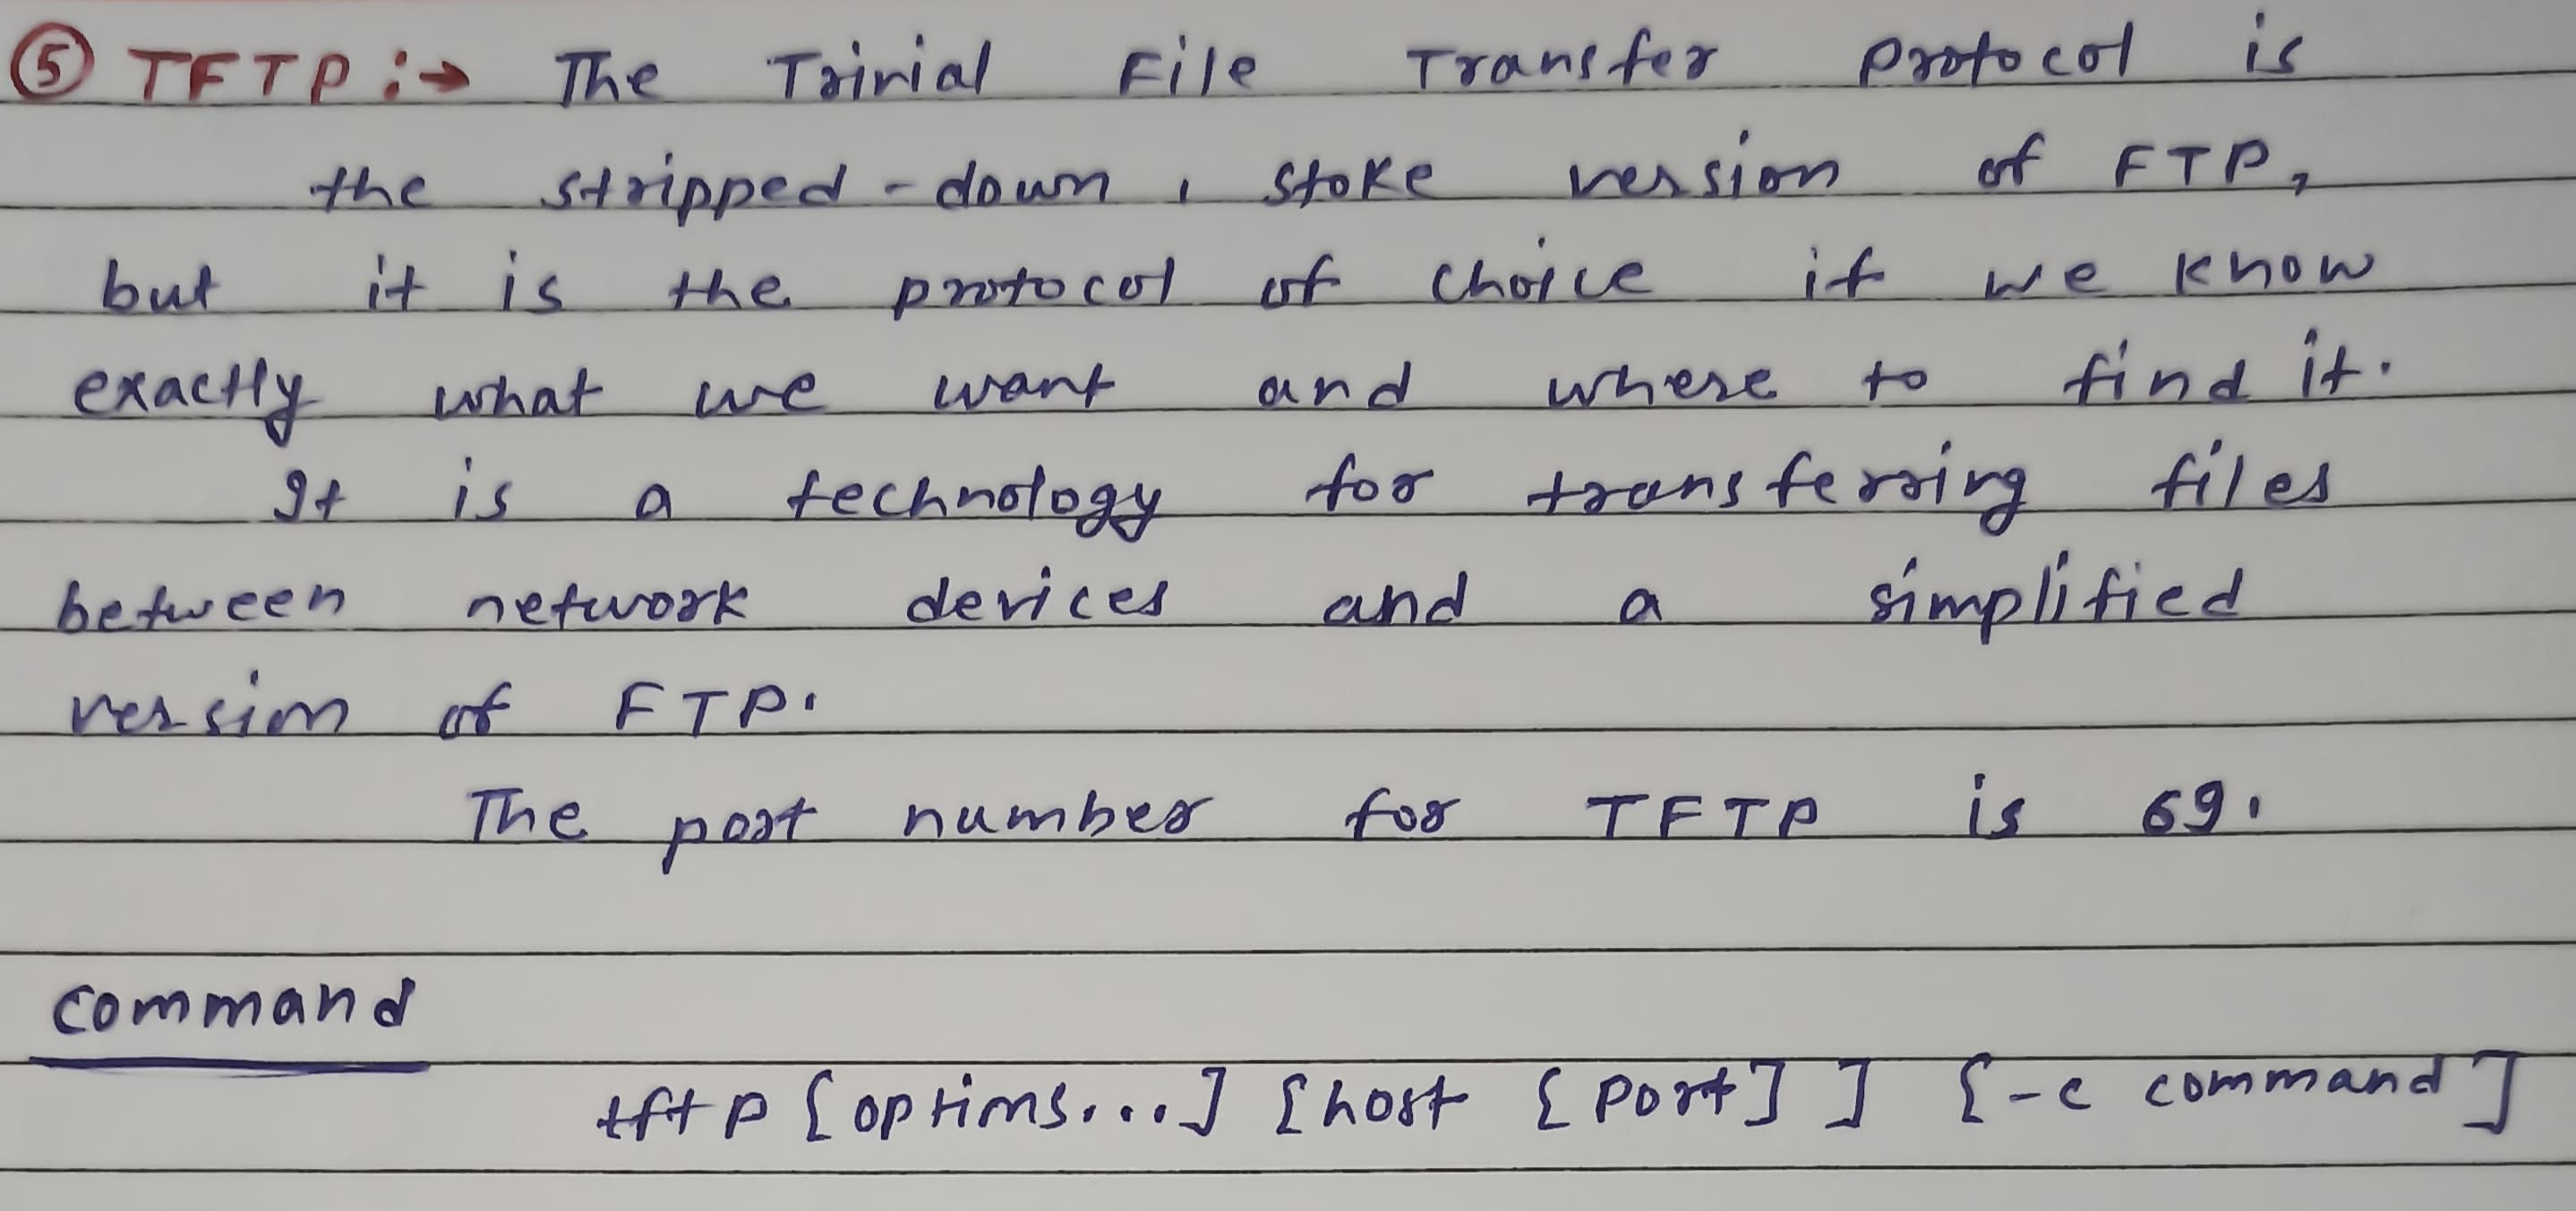 ⑤ TFTP :→ The Trivial File Transfer Protocol is
the stripped-down, stoke version of FTP,
but it is the protocol of choice if we know
exactly what we want and where to find it.
It is a technology for transferring files
between network devices and a simplified
version of FTP.
The port number for TFTP is 69.
command
tftp [options...] [host [port]] [-c command]